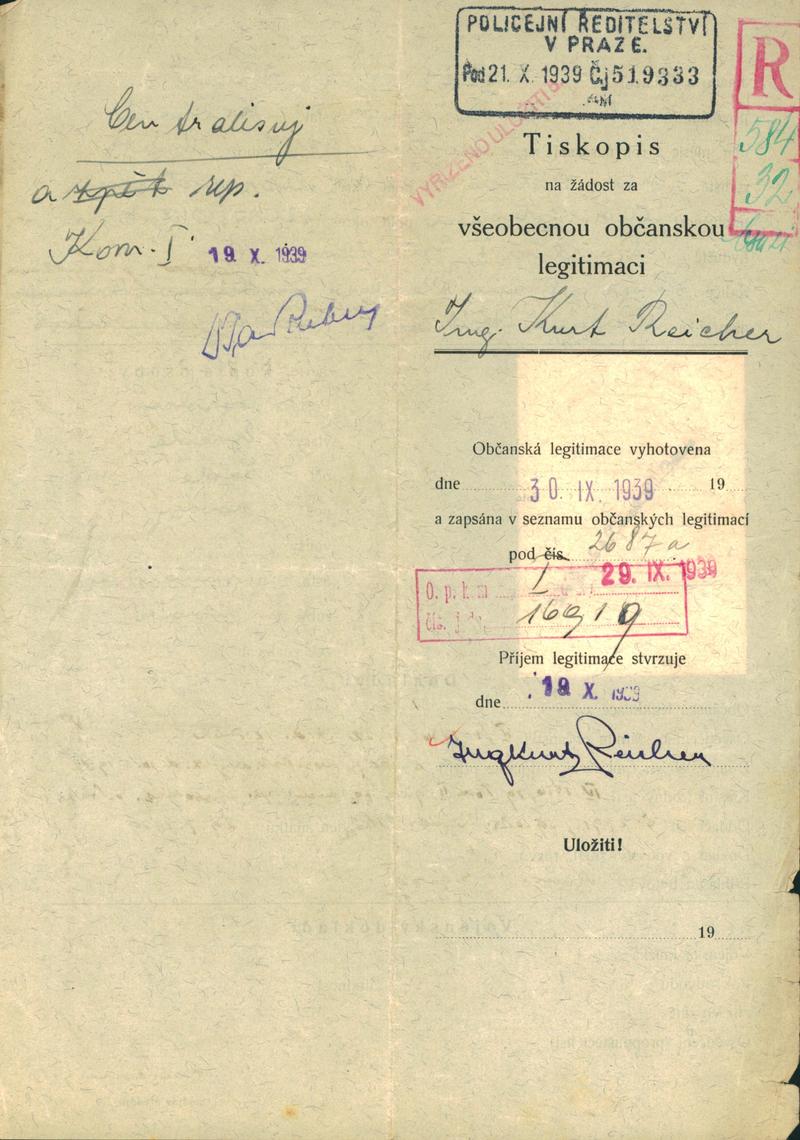 Centralisuj
a zpět rep.
Kom. I
19. X. 1939
POLICEJNÍ ŘEDITELSTVÍ
V PRAZE.
Pod 21. X. 1939 Čj 519333
R
584
32
VYŘÍZENO ULOŽITI
Tiskopis
na žádost za
všeobecnou občanskou
legitimaci
Ing. Kurt Reicher
Občanská legitimace vyhotovena
dne 30. IX. 1939 19
a zapsána v seznamu občanských legitimací
pod čís. 2687a
I 29. IX. 1939
O. p. k.
čís. j. 16919
Příjem legitimace stvrzuje
dne 19. X. 1939
Ing Kurt Reicher
Uložiti!
19